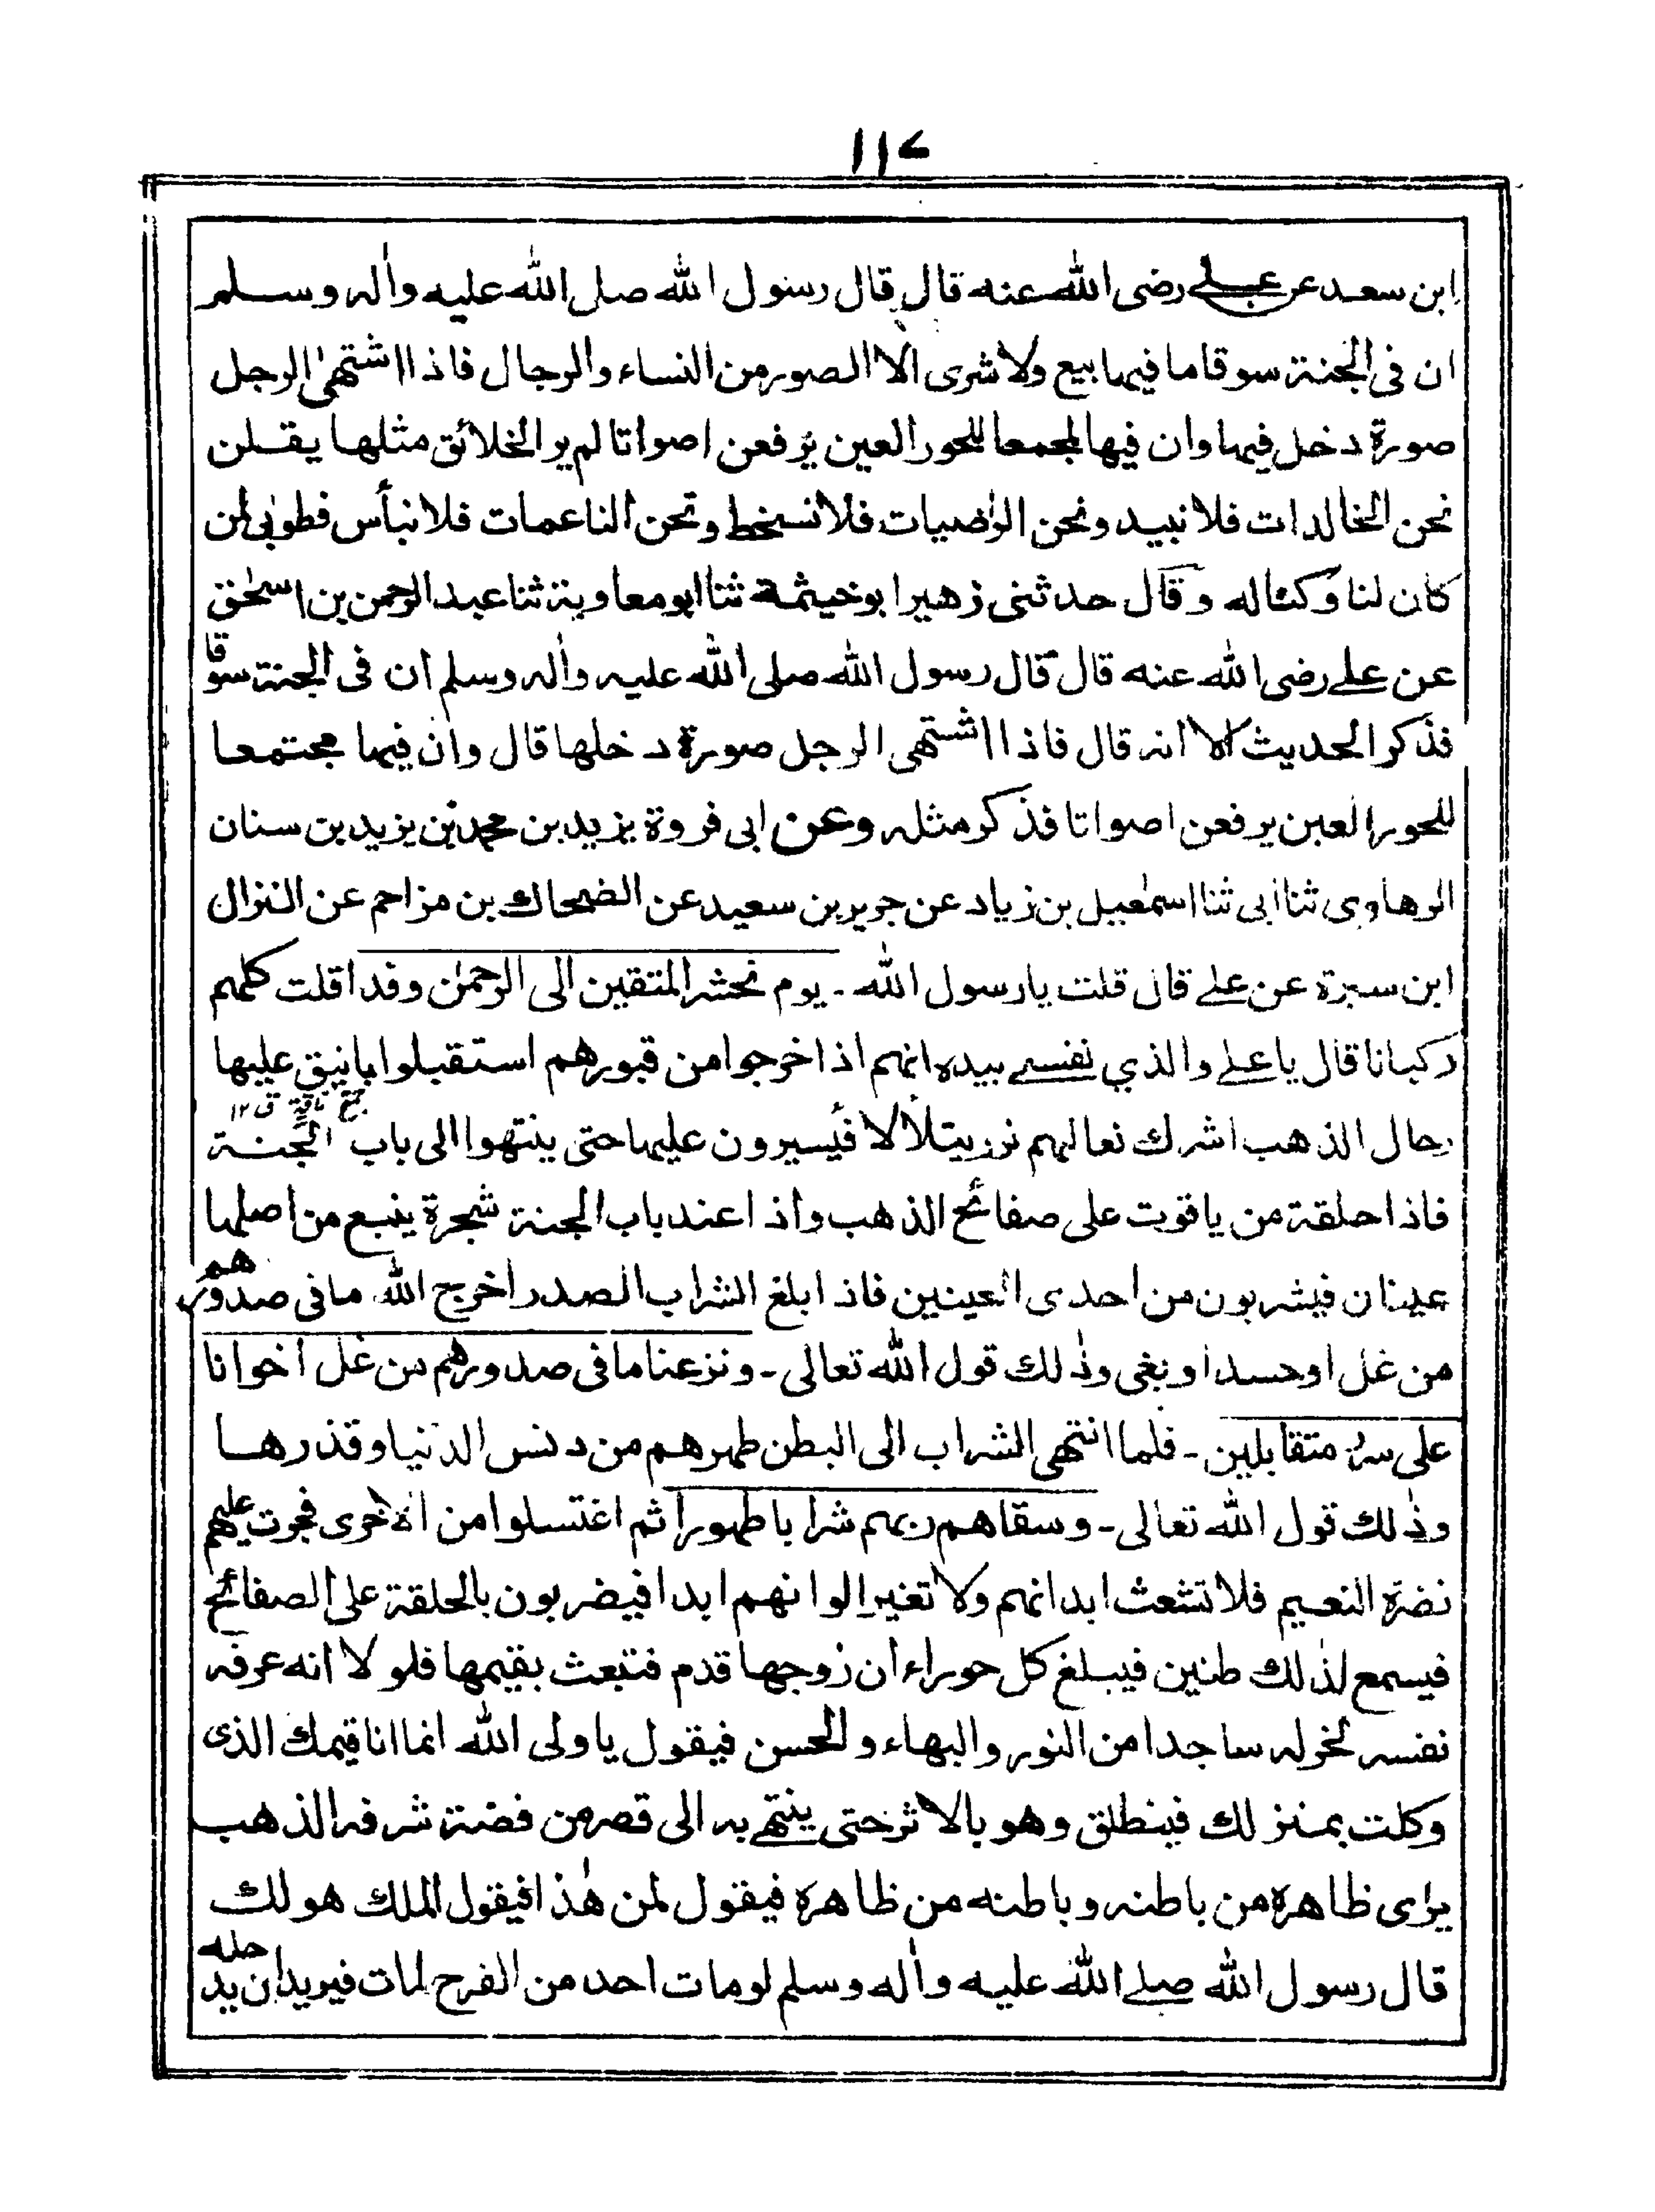 ١١٧
ابن سعد عن علي رضى الله عنه قال قال رسول الله صلى الله عليه واٰله وسلم
ان فى الجنة سوقا ما فيها بيع ولا شرى الا الصور من النساء والرجال فاذا اشتهىٰ الرجل
صورة دخل فيها وان فيها لمجمعا للحور العين يرفعن اصواتا لم ير الخلائق مثلها يقلن
نحن الخالدات فلا نبيد ونحن الراضيات فلا نسخط ونحن الناعمات فلا نبأس فطوبى لمن
كان لنا وكنا له وقال حدثنى زهير ابو خيثمة ثنا ابو معاوية ثنا عبد الرحمن بن اسحٰق
عن علي رضى الله عنه قال قال رسول الله صلى الله عليه واٰله وسلم ان فى الجنة سوقا
فذكر الحديث الا انه قال فاذا اشتهى الرجل صورة دخلها قال وان فيها مجتمعا
للحور العين يرفعن اصواتا فذكر مثله وعن ابى فروة يزيد بن محمد بن يزيد بن سنان
الرهاوى ثنا ابى ثنا اسمٰعيل بن زياد عن جرير بن سعيد عن الضحاك بن مزاحم عن النزال
ابن سبرة عن علي قال قلت يا رسول الله ـ يوم نحشر المتقين الى الرحمٰن وفدا قلت كلهم
ركبانا قال يا علي والذي نفسي بيده انهم اذا خرجوا من قبورهم استقبلوا بانيق عليها
جمع ناقة ق ١٢
رحال الذهب اشرك نعالهم نور يتلألأ فيسيرون عليها حتى ينتهوا الى باب الجنة
فاذا حلقة من ياقوت على صفائح الذهب واذا عند باب الجنة شجرة ينبع من اصلها
عينان فيشربون من احدى العينين فاذا بلغ الشراب الصدر اخرج الله ما فى صدورهم
من غل او حسد او بغى وذٰلك قول الله تعالى ـ ونزعنا ما فى صدورهم من غل اخوانا
على سرر متقابلين ـ فلما انتهى الشراب الى البطن طهرهم من دنس الدنيا وقذرها
وذٰلك قول الله تعالى ـ وسقاهم ربهم شرابا طهورا ثم اغتسلوا من الاخرى فجرت عليهم
نضرة النعيم فلا تشعث ابدانهم ولا تغير الوانهم ابدا فيضربون بالحلقة على الصفائح
فيسمع لذٰلك طنين فيبلغ كل حوراء ان زوجها قدم فتبعث بقيمها فلو لا انه عرفه
نفسه لخر له ساجدا من النور والبهاء والحسن فيقول يا ولى الله انما انا قيمك الذى
وكلت بمنزلك فينطلق وهو بالاثر حتى ينتهي به الى قصر من فضة شرفه الذهب
يرى ظاهره من باطنه وباطنه من ظاهره فيقول لمن هٰذا فيقول الملك هو لك
قال رسول الله صلي الله عليه واٰله وسلم لو مات احد من الفرح لمات فيريد ان يدخله